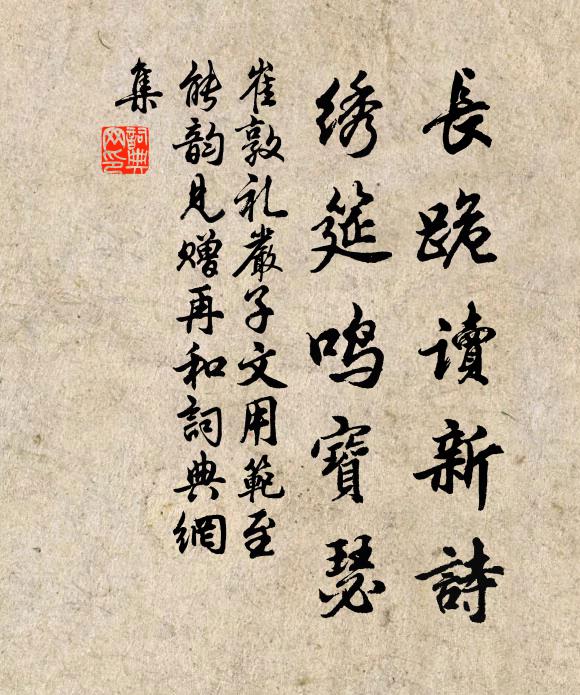 長跪讀新詩
绣筵鳴寶瑟
崔敦礼嚴子文用範至
能韵見赠再和詞典網
集
詞典网印